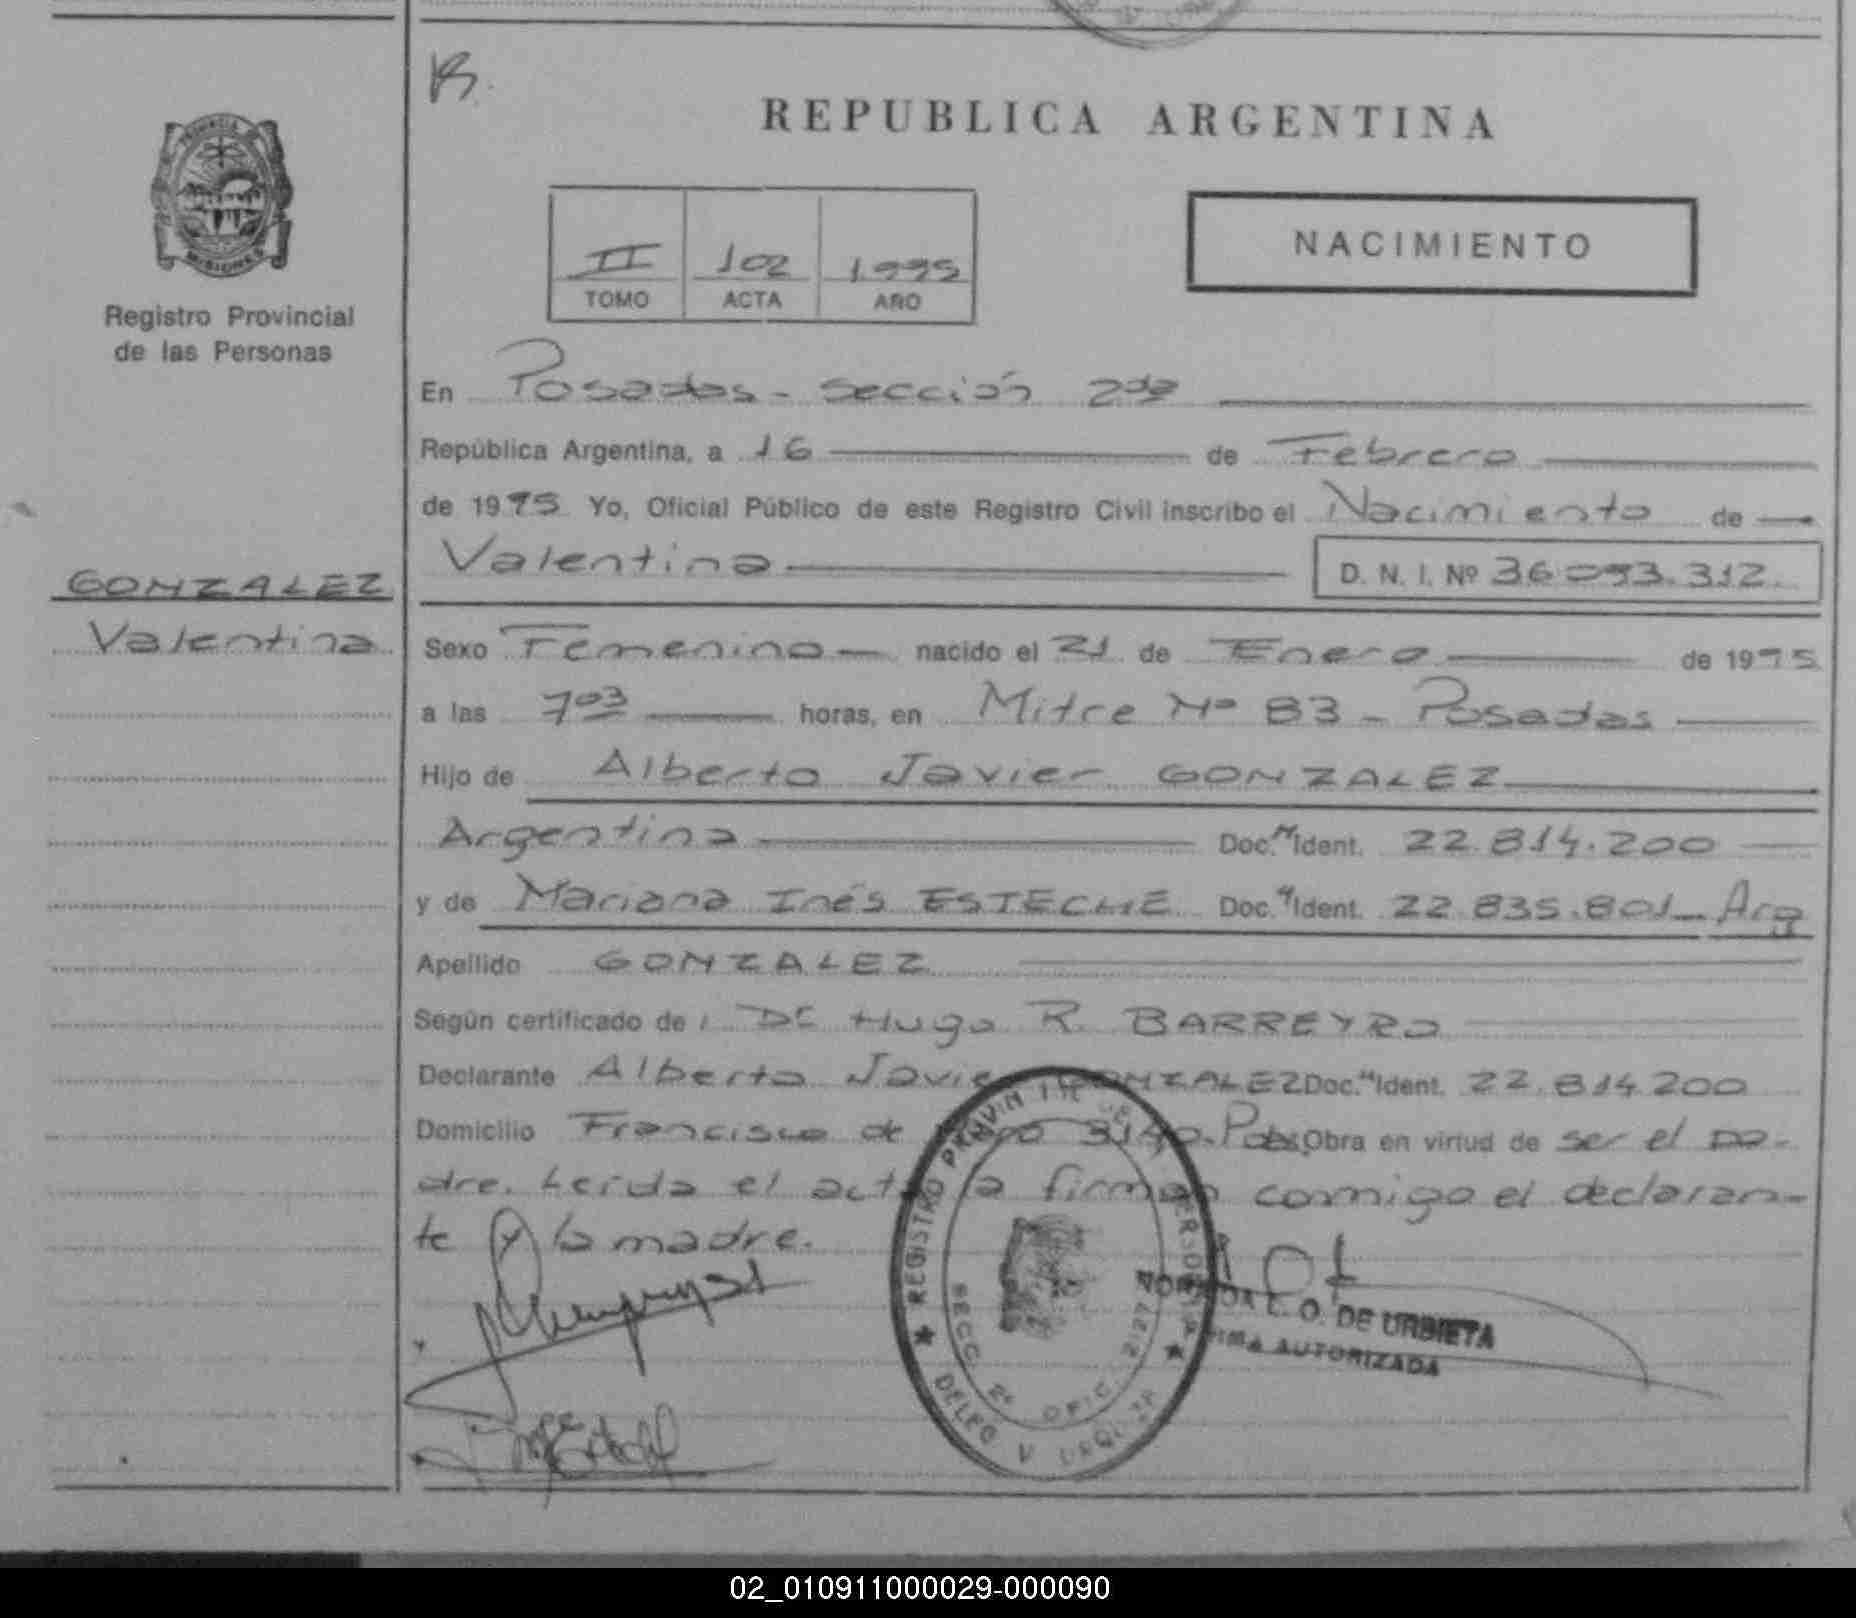 REPUBLICA ARGENTINA
PROVINCIA DE
MISIONES
Registro Provincial
de las Personas
II 102 1995
TOMO ACTA AÑO
NACIMIENTO
En Posadas - Sección 2da
República Argentina, a 16 de Febrero
de 1995 Yo, Oficial Público de este Registro Civil inscribo el Nacimiento de
Valentina D. N. I. Nº 36093.312.
GONZALEZ
Valentina
Sexo Femenino nacido el 21 de Enero de 1995
a las 7 03 horas, en Mitre Nº 83 - Posadas
Hijo de Alberto Javier GONZALEZ
Argentina Doc. Ident. 22.814.200
y de Mariana Inés ESTECHE Doc. Ident. 22.835.801 - Arg
Apellido GONZALEZ
Según certificado de Hugo R. BARREYRO
Declarante Alberto Javier GONZALEZ Doc. Ident. 22.814.200
Domicilio Francisco de 3140. Obra en virtud de ser el pa-
dre. Leída el acta la firman conmigo el declaran-
te y la madre.
REGISTRO PROVIN DE PERSONAS
SECC. 2º OFIC. 2127
DELEG V URQUIZA
E. O. DE URBIETA
FIRMA AUTORIZADA
02_010911000029-000090